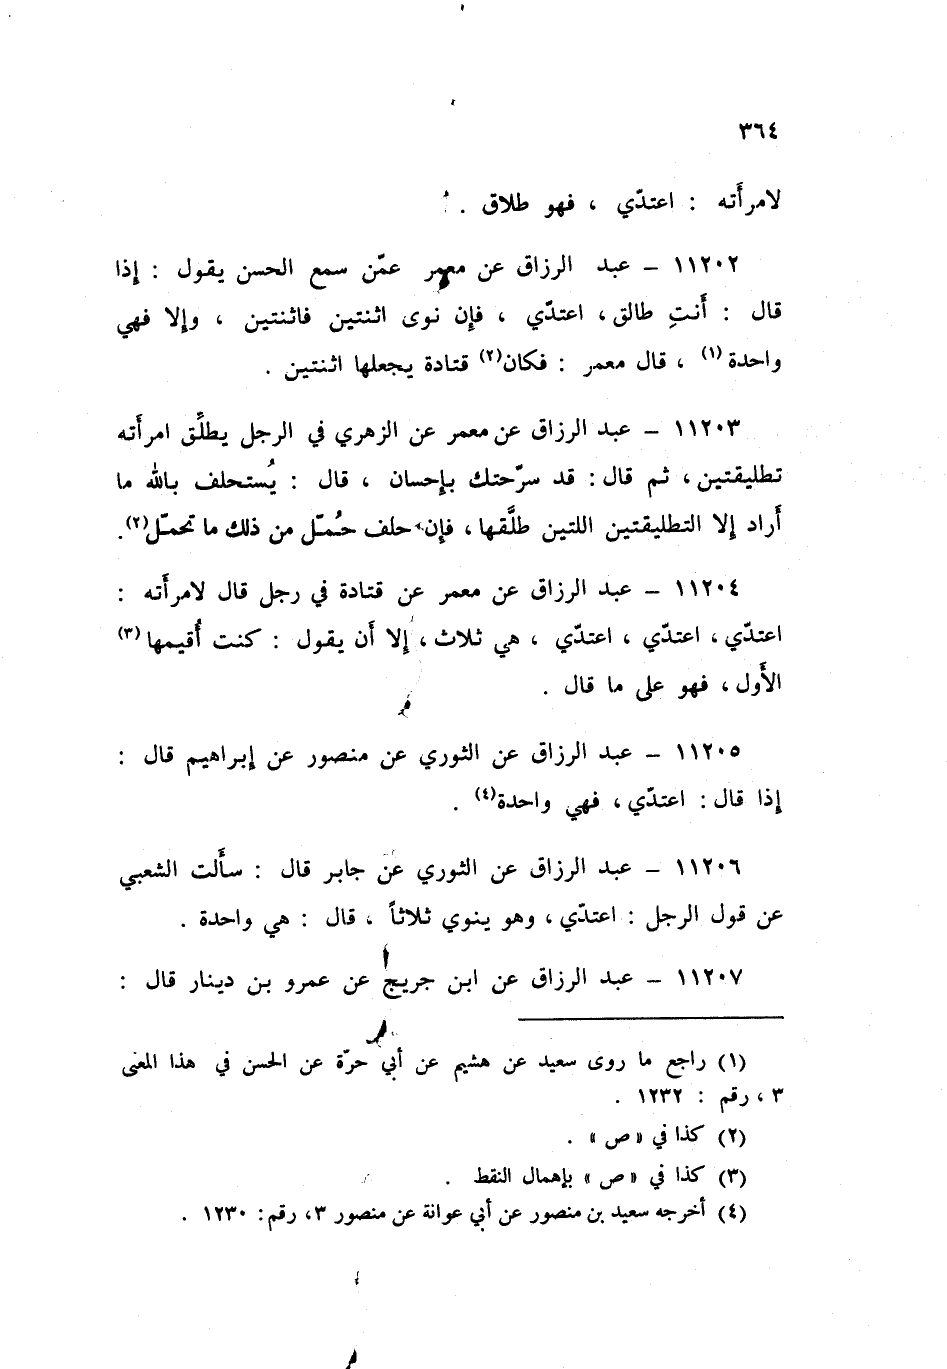 ٣٦٤
لامرأَته : اعتدّي ، فهو طلاق .
١١٢٠٢ – عبد الرزاق عن معمر عمّن سمع الحسن يقول : إذا
قال : أَنتِ طالق ، اعتدّي ، فإن نوى اثنتين فاثنتين ، وإلا فهي
واحدة(١) ، قال معمر : فكان(٢) قتادة يجعلها اثنتين .
١١٢٠٣ – عبد الرزاق عن معمر عن الزهري في الرجل يطلِّق امرأَته
تطليقتين ، ثم قال : قد سرّحتك بإحسان ، قال : يُستحلف بالله ما
أَراد إلا التطليقتين اللتين طلَّقها ، فإن حلف حُمّل من ذلك ما تحمّل(٢).
١١٢٠٤ – عبد الرزاق عن معمر عن قتادة في رجل قال لامرأَته :
اعتدّي ، اعتدّي ، اعتدّي ، هي ثلاث ، إلا أَن يقول : كنت أُقيمها(٣)
الأَول ، فهو على ما قال .
١١٢٠٥ – عبد الرزاق عن الثوري عن منصور عن إبراهيم قال :
إذا قال : اعتدّي ، فهي واحدة(٤) .
١١٢٠٦ – عبد الرزاق عن الثوري عن جابر قال : سأَلت الشعبي
عن قول الرجل : اعتدّي ، وهو ينوي ثلاثاً ، قال : هي واحدة .
١١٢٠٧ – عبد الرزاق عن ابن جريج عن عمرو بن دينار قال :
(١) راجع ما روى سعيد عن هشيم عن أبي حرّة عن الحسن في هذا المعنى
٣ ، رقم : ١٢٣٢ .
(٢) كذا في « ص » .
(٣) كذا في « ص » بإهمال النقط .
(٤) أخرجه سعيد بن منصور عن أبي عوانة عن منصور ٣، رقم : ١٢٣٠ .